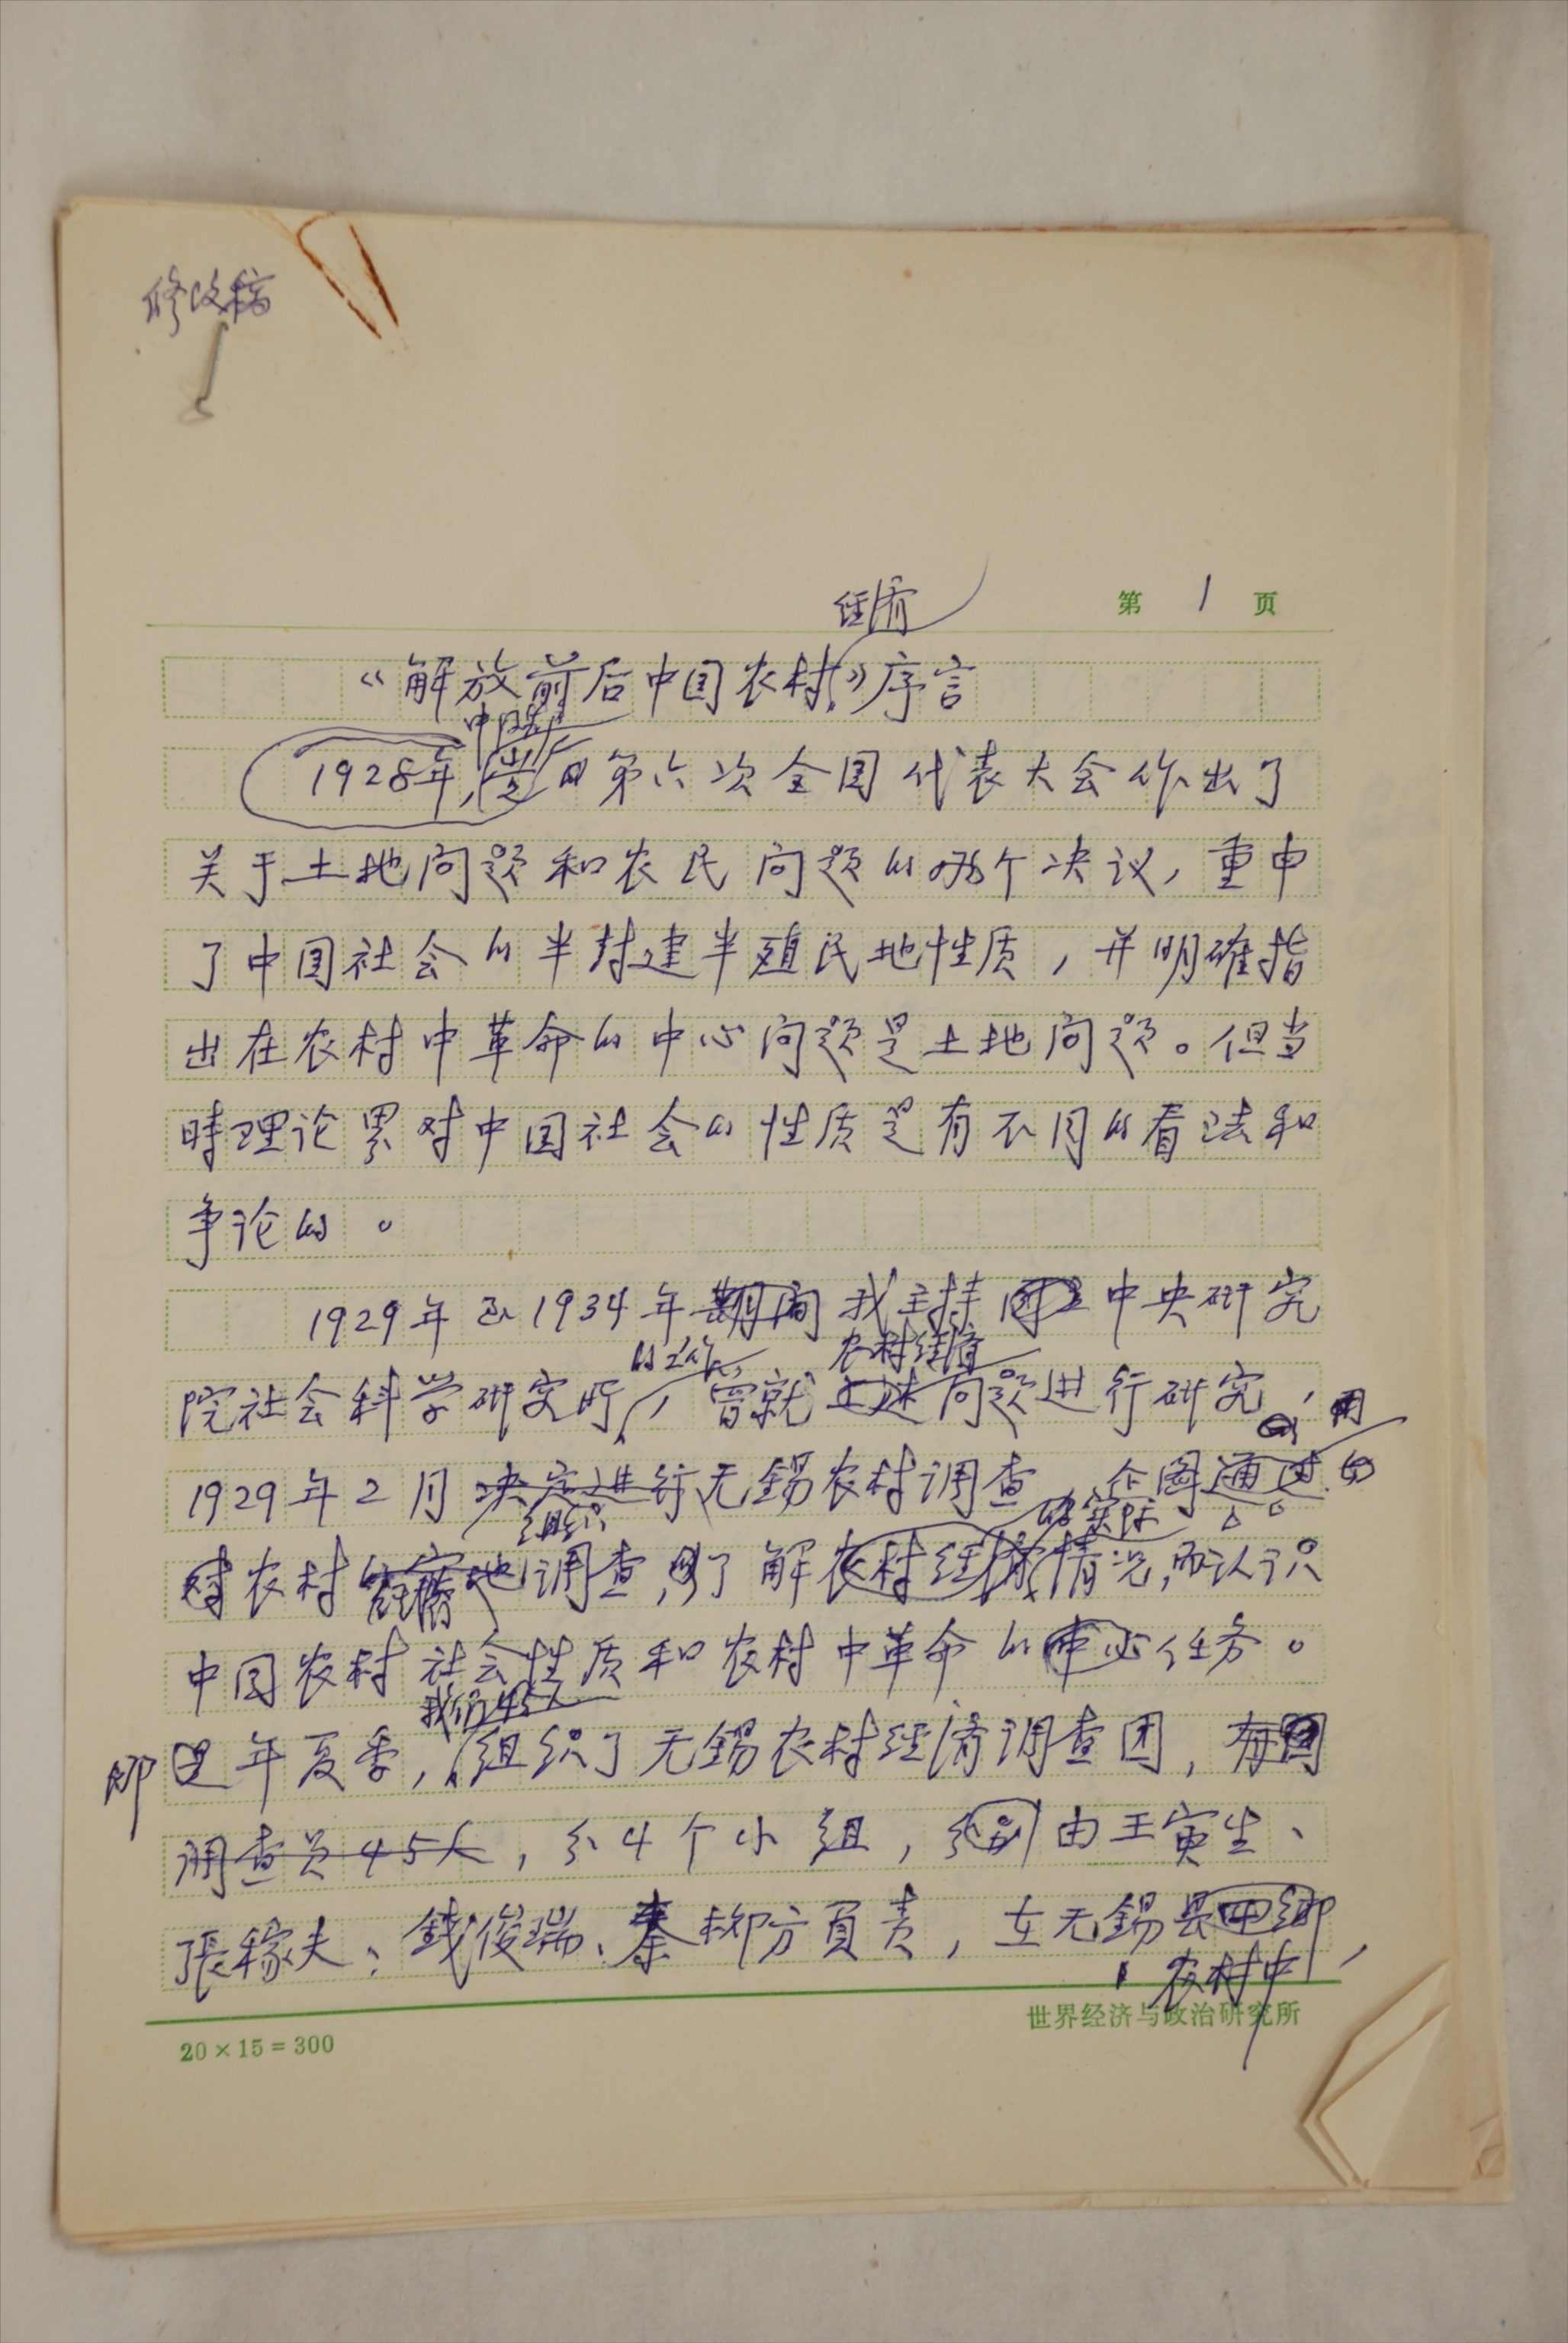 修改稿
第 1 页
经济
《解放前后中国农村》序言
中国共产
1928年,党的第六次全国代表大会作出了
关于土地问题和农民问题的两个决议,重申
了中国社会的半封建半殖民地性质,并明确指
出在农村中革命的中心问题是土地问题。但当
时理论界对中国社会的性质是有不同的看法和
争论的。
1929年至1934年期间我主持国立中央研究
的工作, 农村经济
院社会科学研究所,曾就上述问题进行研究,
用
1929年2月决定进行无锡农村调查 企图通过
组织 的实际
对农村实地调查,了解农村经济情况,而认识
中国农村社会性质和农村中革命的中心任务。
我们45人
即 这年夏季,组织了无锡农村经济调查团,有团
调查员45人,分4个小组,分别由王寅生、
張稼夫、錢俊瑞、秦柳方負责,在无锡县四乡
农村中,
20×15=300
世界经济与政治研究所